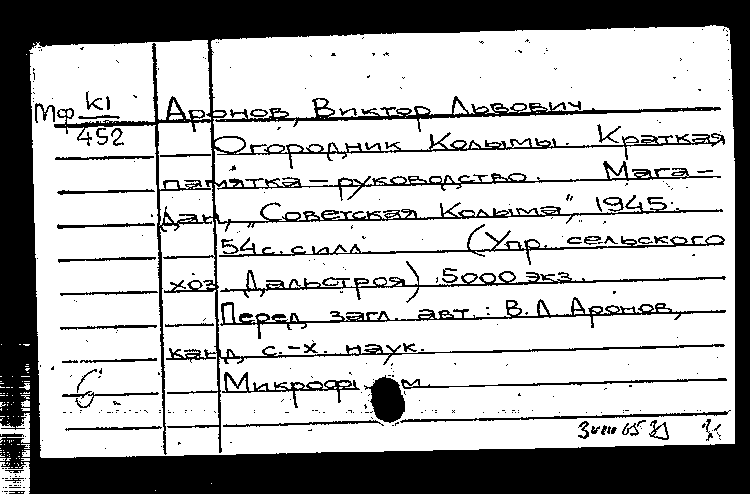 Мф К1
452
Аронов, Виктор Львович.
Огородник Колымы. Краткая
памятка-руководство. Мага-
дан, „Советская Колыма", 1945.
54 с. с илл. (Упр. сельского
хоз. Дальстроя) 5000 экз.
Перед загл. авт.: В.Л Аронов,
канд. с.-х. наук.
Микрофи м.
6.